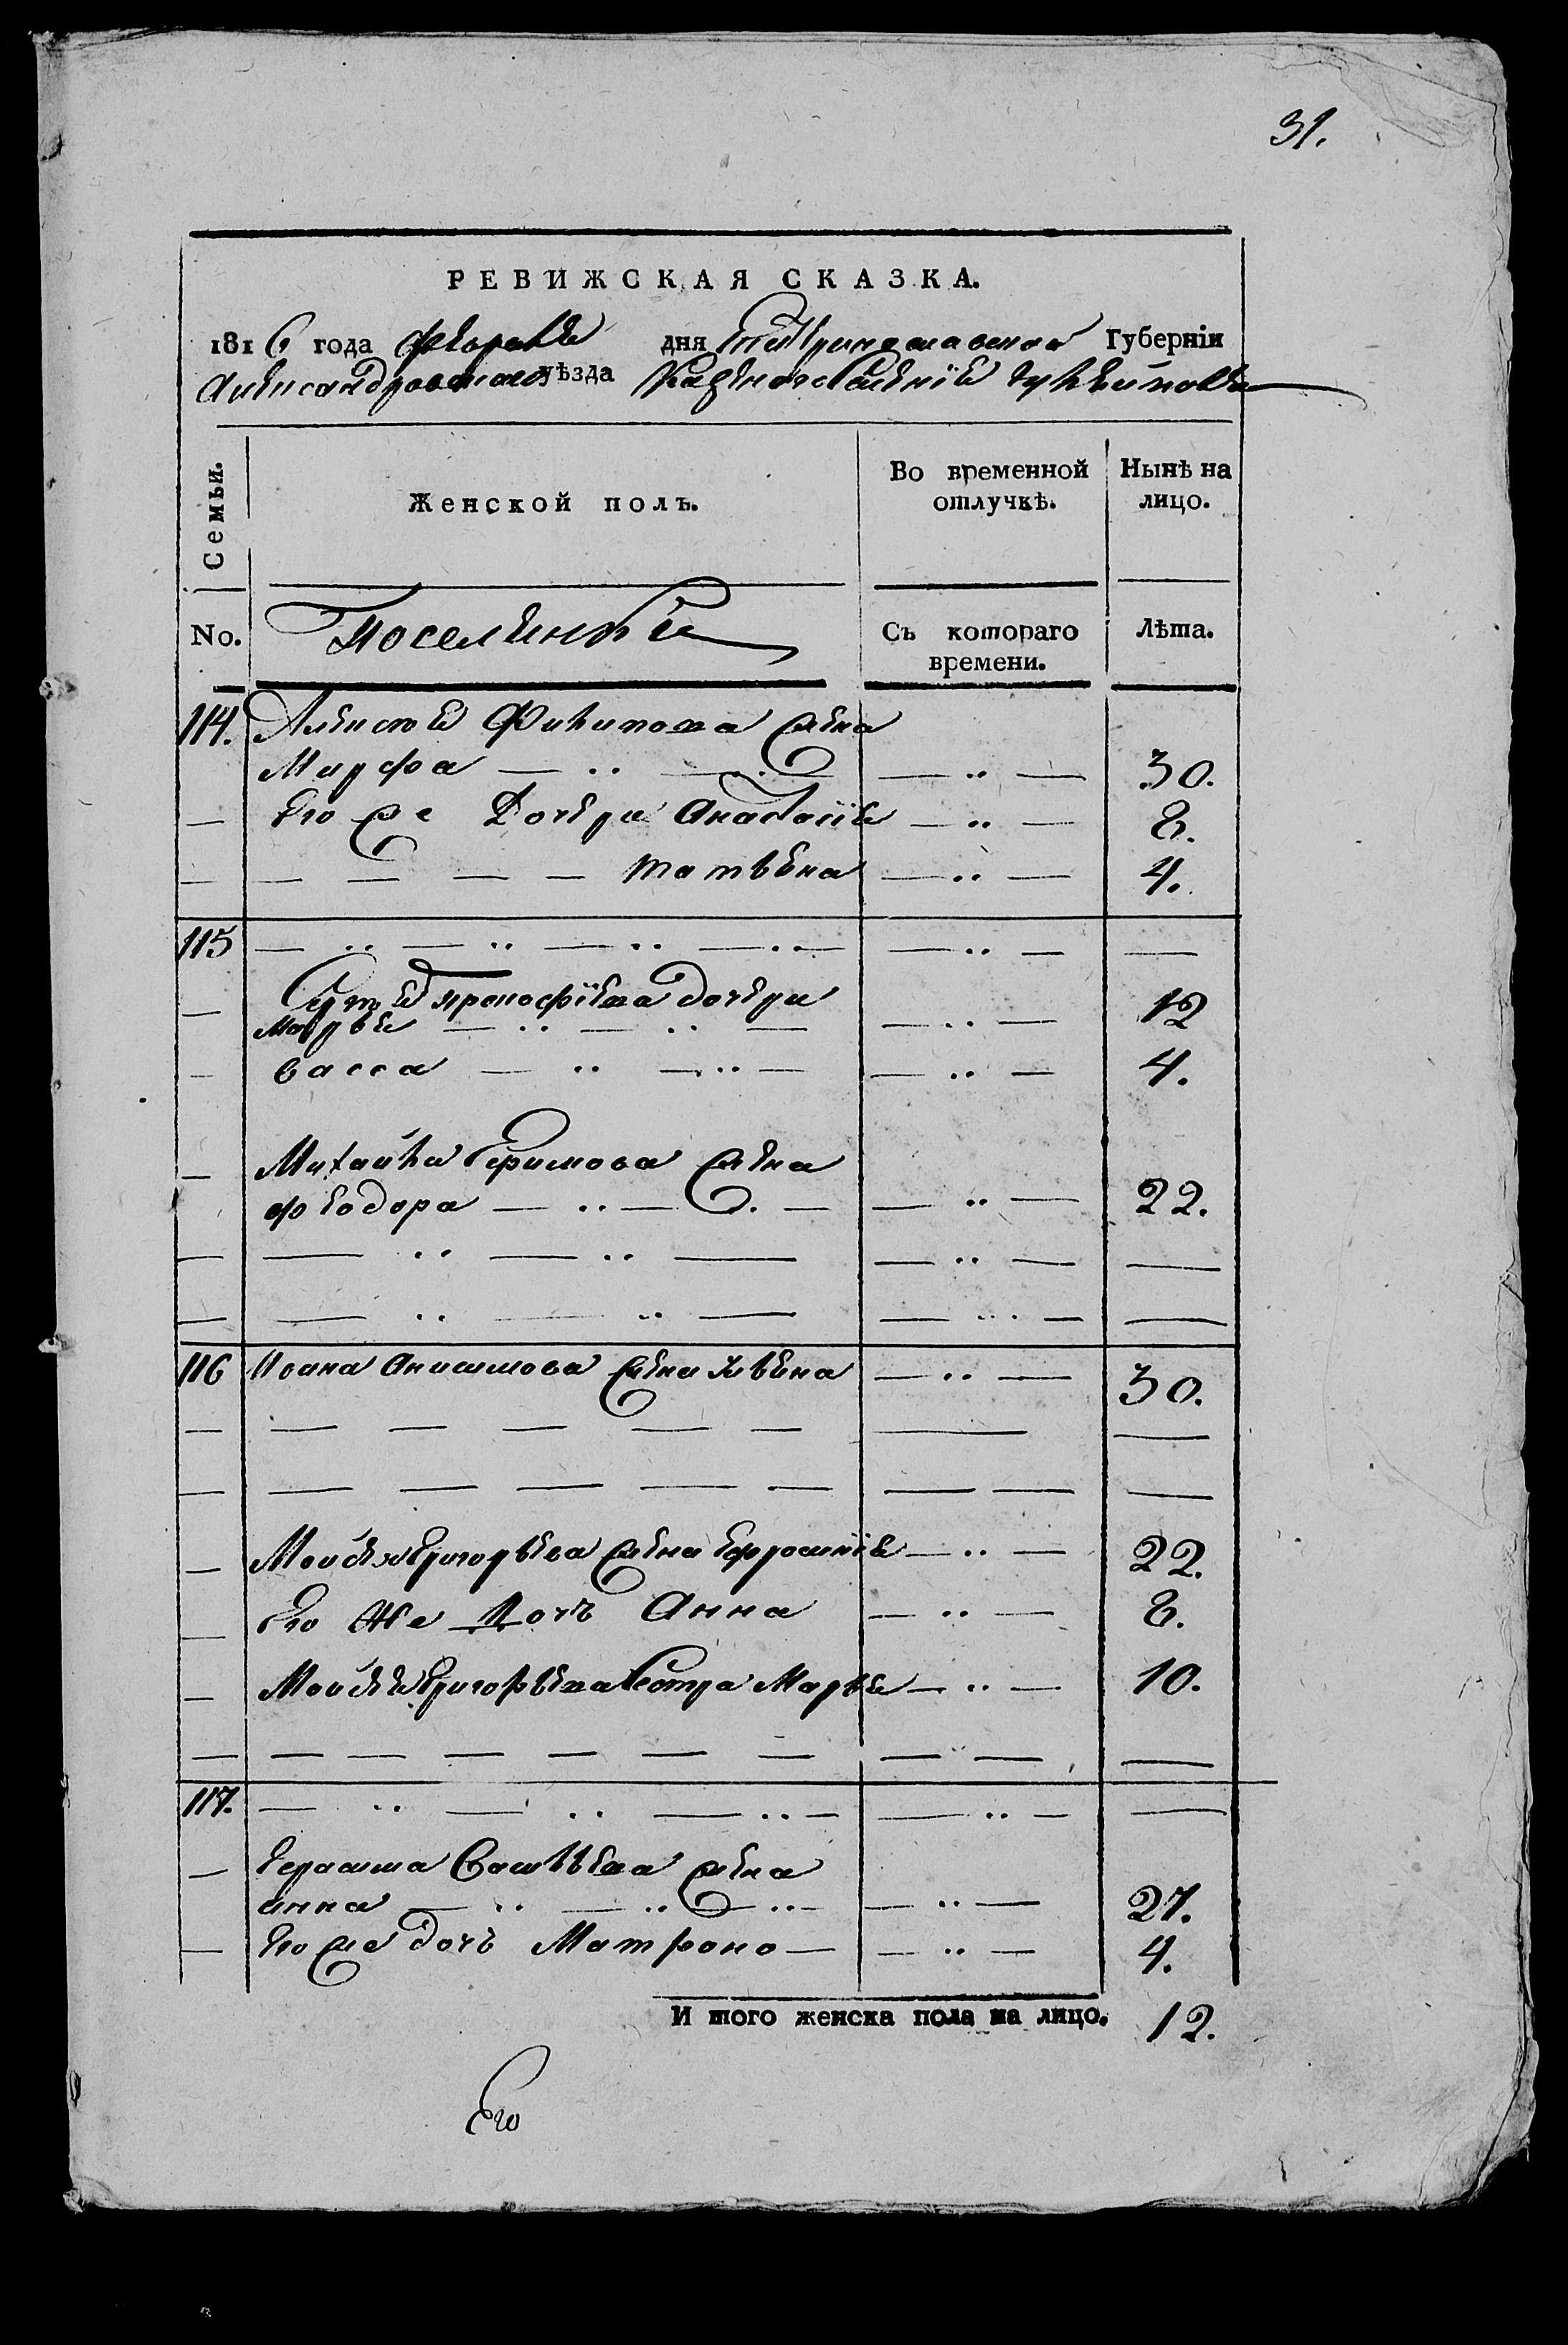 31.
РЕВИЖСКАЯ СКАЗКА.
1816 года февраля дня Екатеринославской Губерніи
Александровского уѣзда Казенного селенія
Семьи.
Женской полъ.
Во временной отлучкѣ.
Нынѣ на лицо.
No.
Поселянъ
Съ котораго времени.
Лѣта.
114. Алексея Филипова жена
Марфа — .. — .. — — .. — 30.
— Его же Дочери Анастасія — .. — 8.
— — — — — татьяна — .. — 4.
115 — .. — .. — .. — .. — — .. — —
— прокофіева дочери
марья — .. — .. — — .. — 12
— васса — .. — .. — — .. — 4.
— Михайла Ефимова жена
феодора — .. — . — — .. — 22.
— — .. — .. — — .. — —
— — .. — .. — — .. — —
116 Иоана Анисимова жена — .. — 30.
— — — — — — — —
— — — — — — — — —
— Моисея Григорьева жена Ефросинія — .. — 22.
— Его же дочь Анна — .. — 8.
— Моисея Григорьева сестра Марья — .. — 10.
— — — — — — — — .. — —
117. — .. — .. — .. — — .. — —
— Герасима Васильева жена
анна — .. — .. — .. — — .. — 27.
— Его же дочь Матрона — — .. — 4.
И того женска пола на лицо. 12.
Его